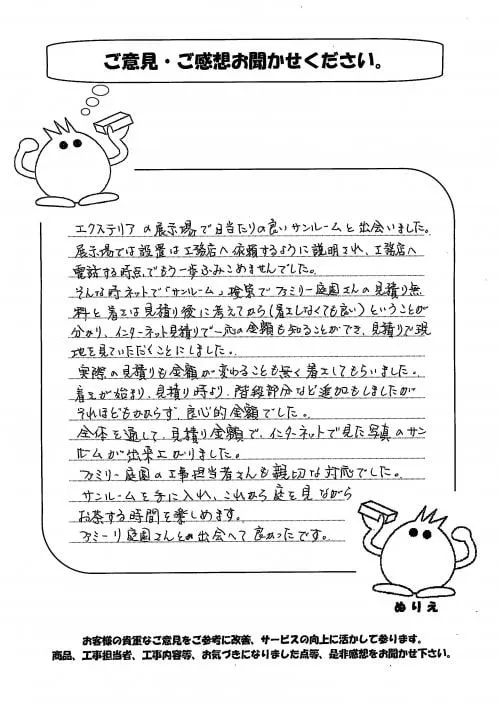 ご意見・ご感想お聞かせください。
エクステリアの展示場で日当たりの良いサンルームと出会いました。
展示場では設置は工務店へ依頼するように説明され、工務店へ
電話する時点でもう一歩ふみこめませんでした。
そんな時ネットで「サンルーム」検索でファミリー庭園さんの見積り無
料と着工は見積り後に考えてから(着工しなくても良い)ということが
分かり、インターネット見積りで一応の金額も知ることができ、見積りで現
地を見ていただくことにしました。
実際の見積りも金額が変わることも無く着工してもらいました。
着工が始まり、見積り時より、階段部分など追加もしましたが
それほどもかからず、良心的金額でした。
全体を通して、見積り金額で、インターネットで見た写真のサン
ルームが出来上がりました。
ファミリー庭園の工事担当者さんも親切な対応でした。
サンルームを手に入れ、これから庭を見ながら
お茶する時間を楽しめます。
ファミーリ庭園さんとの出会へて良かったです。
ぬりえ
お客様の貴重なご意見をご参考に改善、サービスの向上に活かして参ります。
商品、工事担当者、工事内容等、お気づきになりました点等、是非感想をお聞かせ下さい。